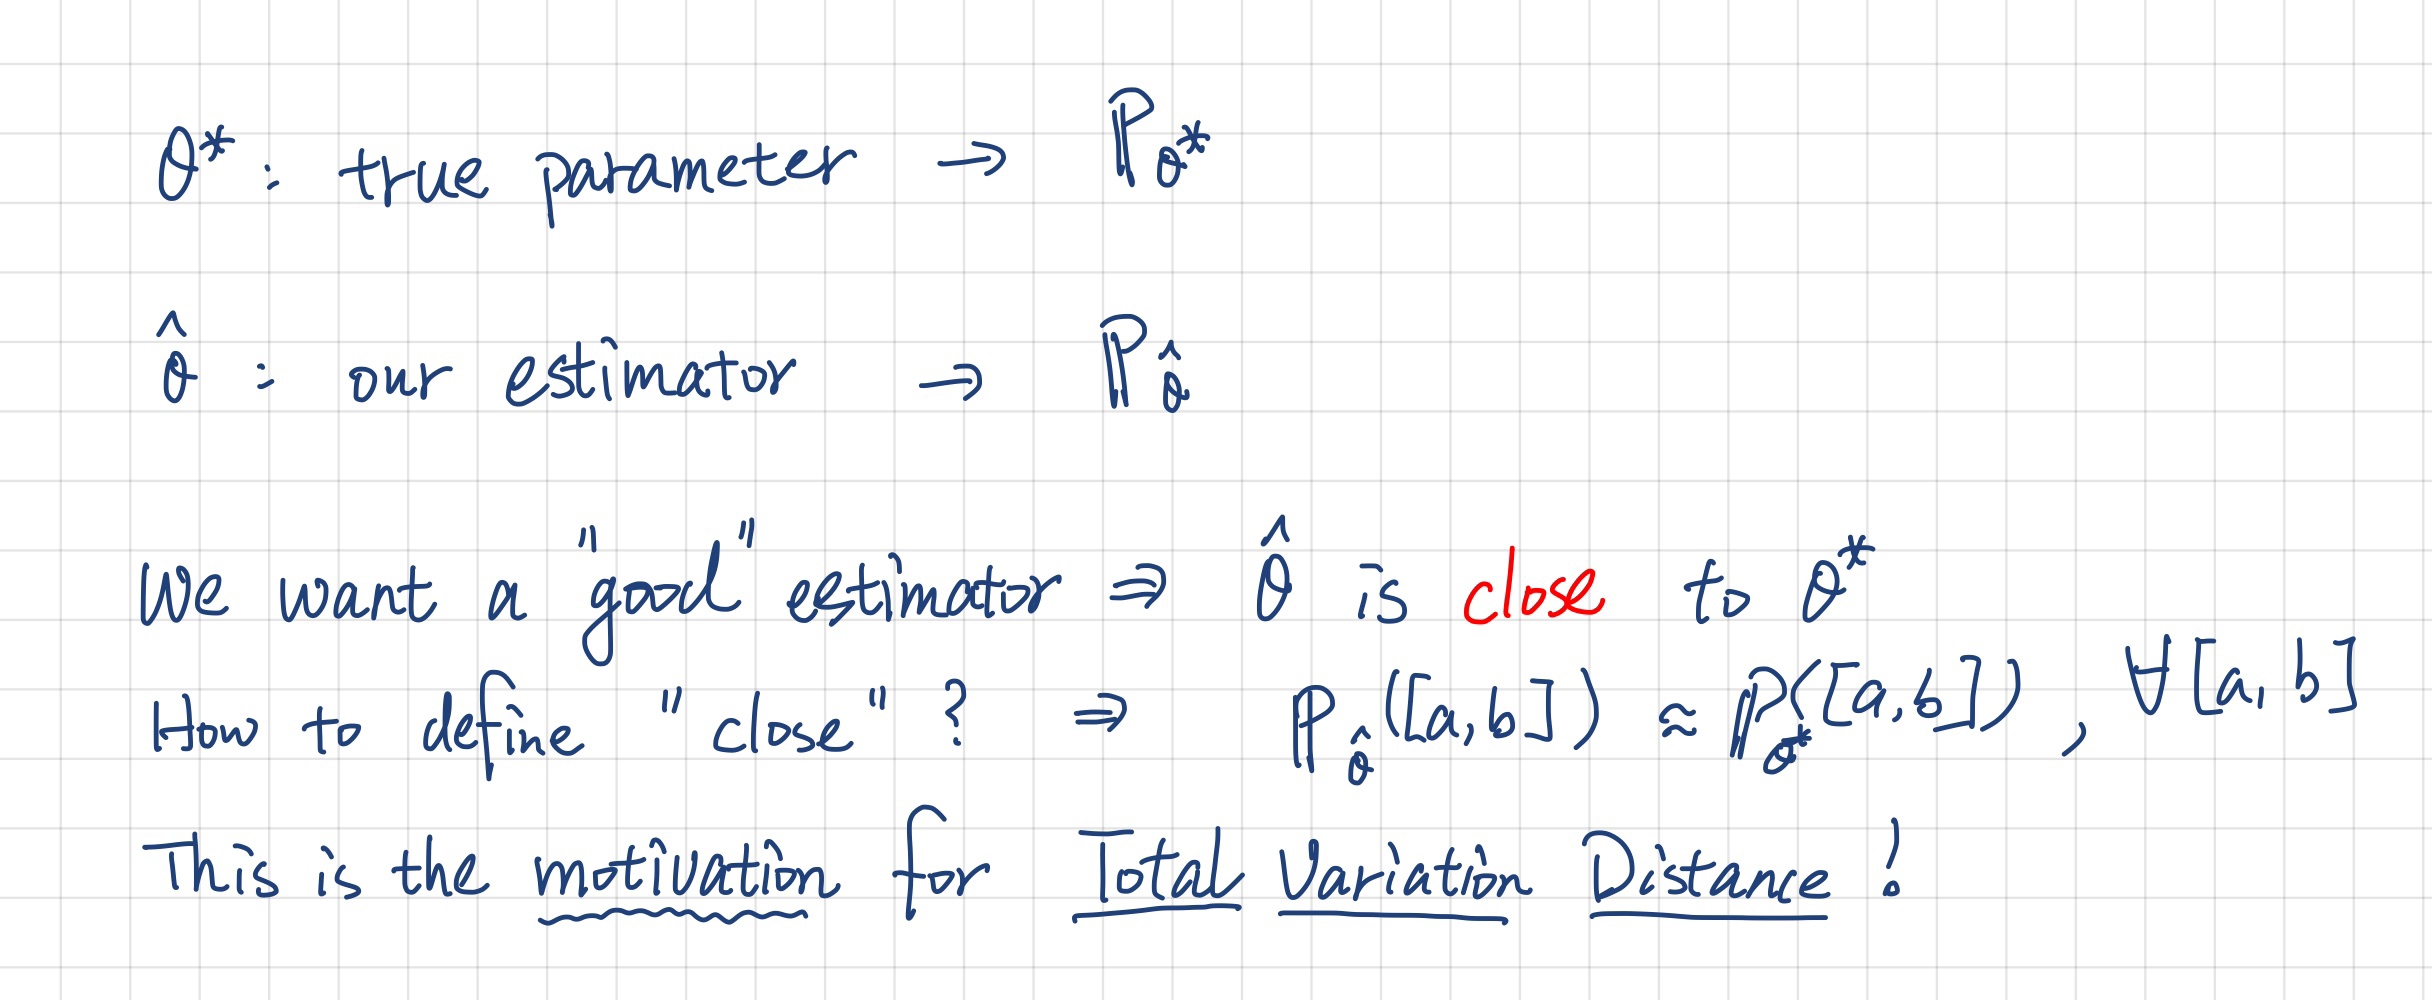 θ* : true parameter → ℙ_θ*
θ̂ : our estimator → ℙ_θ̂
We want a "good" estimator ⇒ θ̂ is close to θ*
How to define "close" ? ⇒ ℙ_θ̂([a,b]) ≈ ℙ_θ*([a,b]) , ∀[a,b]
This is the motivation for Total Variation Distance !